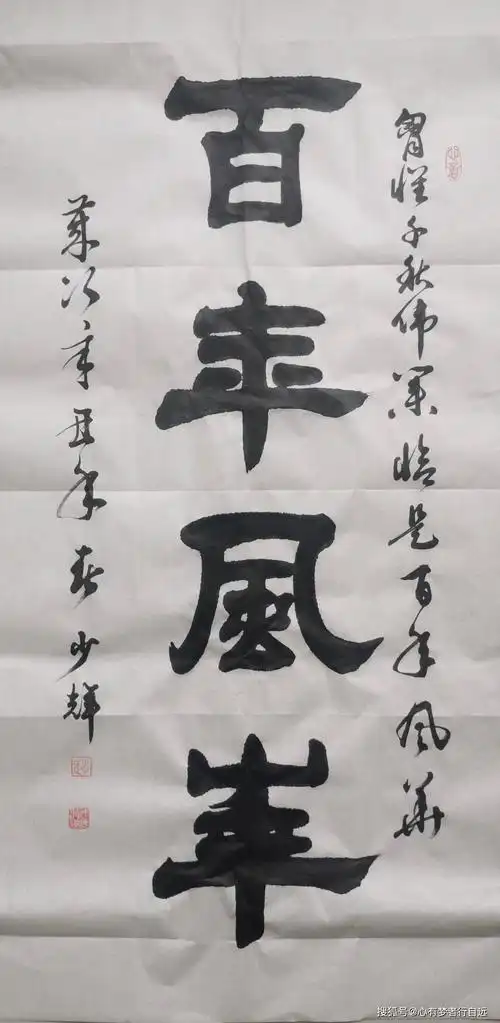 胷懷千秋伟業恰是百年风華
百年風華
歲次辛丑年春少輝
搜狐号@心有梦者行自远